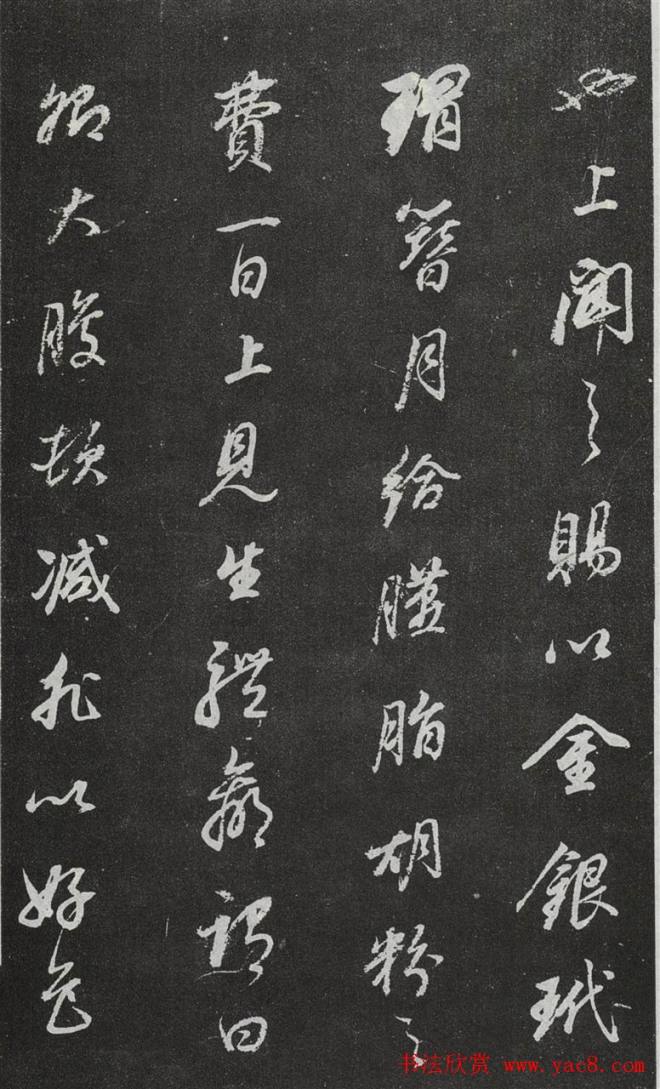 也上闻之賜以金銀玳
瑁簪月給臙脂胡粉之
費一日上見生體羸謂曰
卿大腹頓减非以好色
书法欣赏 www.yac8.com